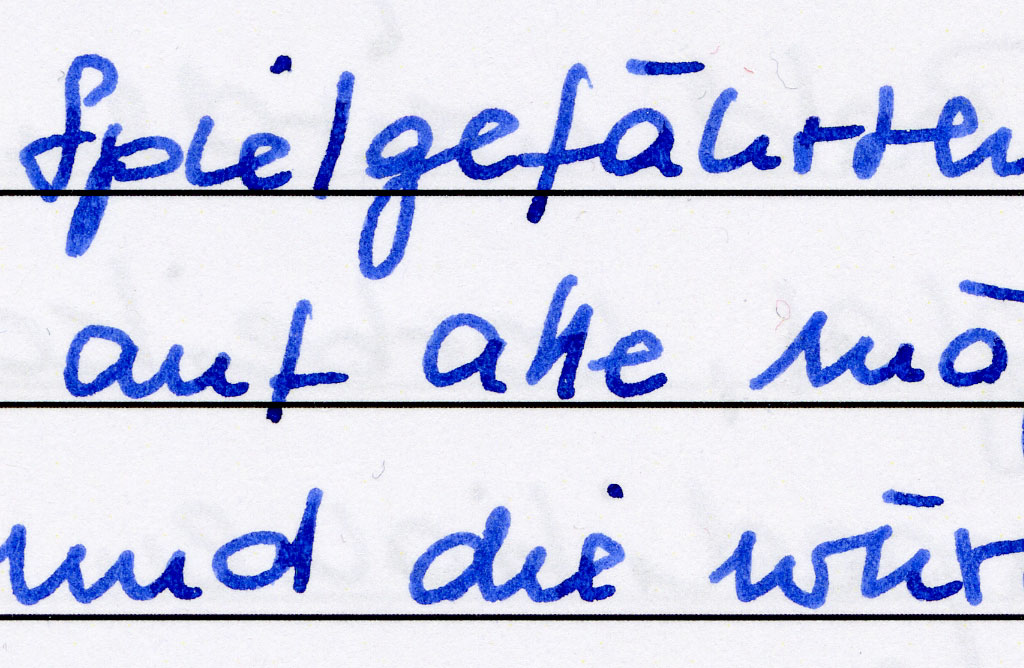 Spielgefährten
auf alle mö
und die wür